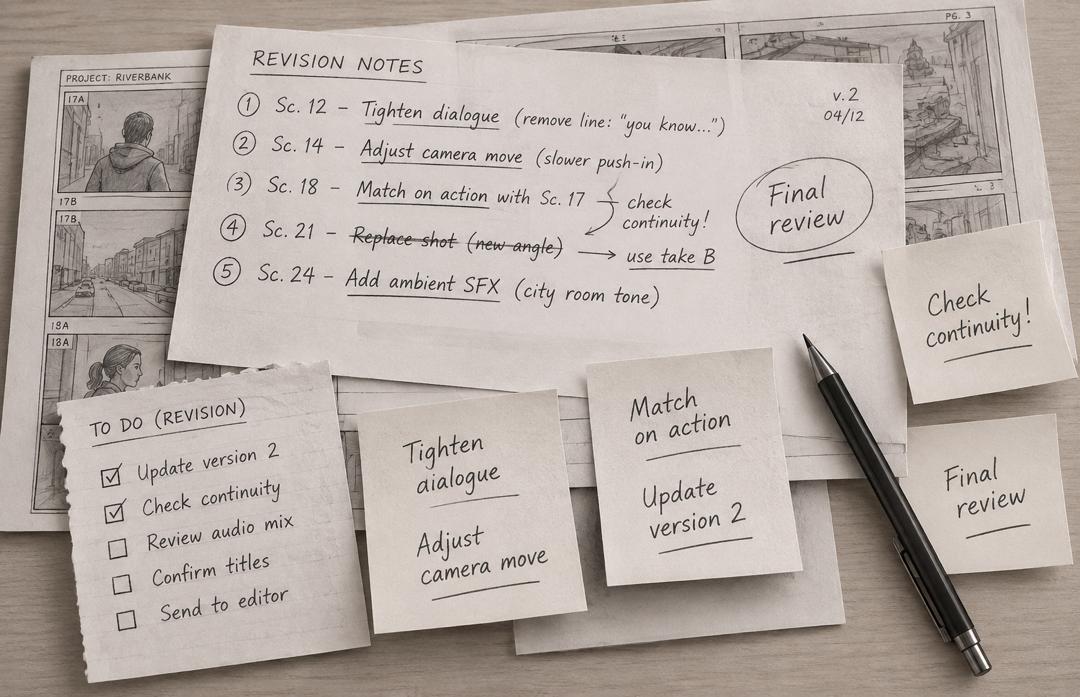 PROJECT: RIVERBANK
17A
17B
17B
18A
18A
PG. 3
REVISION NOTES
v.2
04/12
① Sc. 12 – Tighten dialogue (remove line: "you know...")
② Sc. 14 – Adjust camera move (slower push-in)
③ Sc. 18 – Match on action with Sc. 17
check
continuity!
④ Sc. 21 – Replace shot (new angle) → use take B
⑤ Sc. 24 – Add ambient SFX (city room tone)
Final
review
TO DO (REVISION)
☑ Update version 2
☑ Check continuity
☐ Review audio mix
☐ Confirm titles
☐ Send to editor
Tighten
dialogue
Adjust
camera move
Match
on action
Update
version 2
Check
continuity!
Final
review